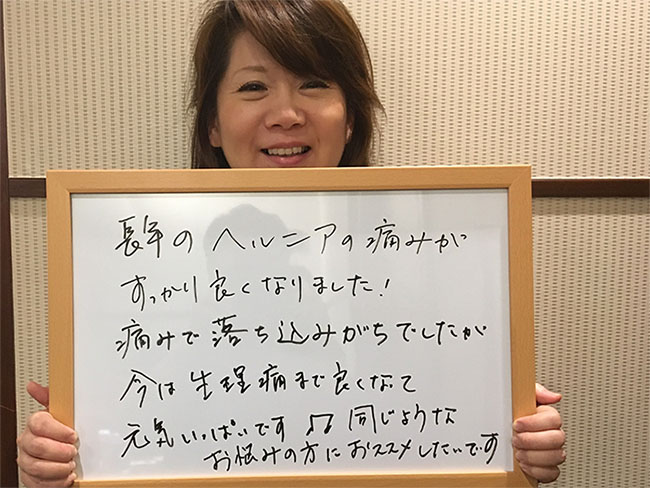 長年のヘルニアの痛みが
すっかり良くなりました!
痛みで落ち込みがちでしたが
今は生理痛まで良くなって
元気いっぱいです♫ 同じような
お悩みの方におススメしたいです